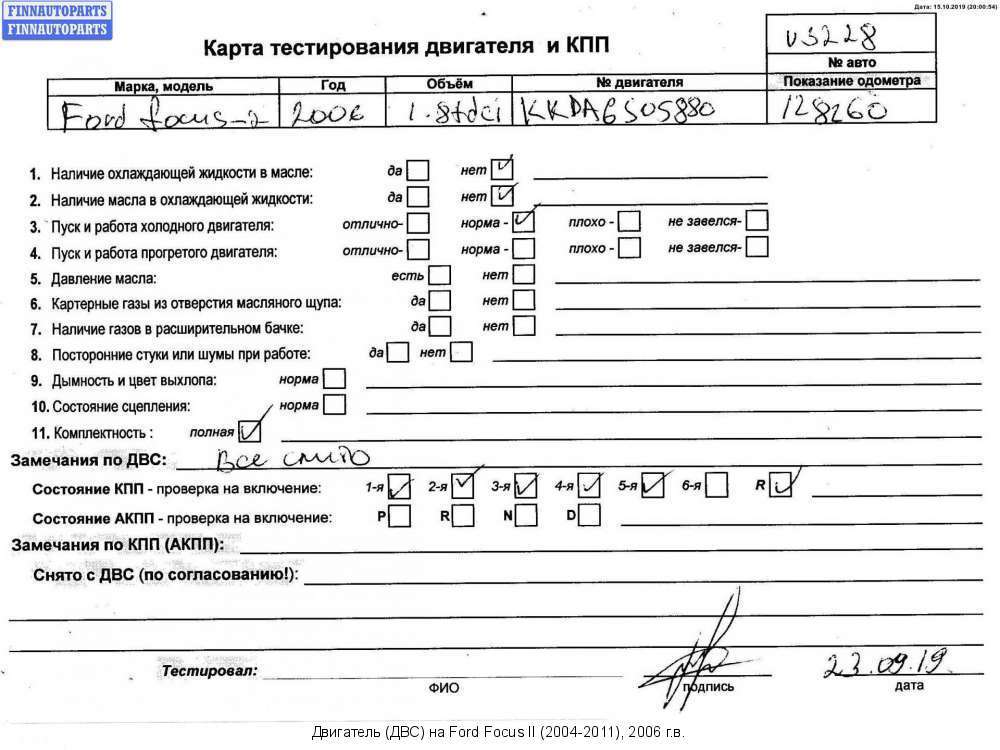 FINNAUTOPARTS
FINNAUTOPARTS
Дата: 15.10.2019 (20:00:54)
Карта тестирования двигателя и КПП
vs228
№ авто
Марка, модель Год Объём № двигателя Показание одометра
Ford focus-2 2006 1.8tdci KKDA6S05880 128260
1. Наличие охлаждающей жидкости в масле: да нет
2. Наличие масла в охлаждающей жидкости: да нет
3. Пуск и работа холодного двигателя: отлично- норма - плохо - не завелся-
4. Пуск и работа прогретого двигателя: отлично- норма - плохо - не завелся-
5. Давление масла: есть нет
6. Картерные газы из отверстия масляного щупа: да нет
7. Наличие газов в расширительном бачке: да нет
8. Посторонние стуки или шумы при работе: да нет
9. Дымность и цвет выхлопа: норма
10. Состояние сцепления: норма
11. Комплектность : полная
Замечания по ДВС: Все
Состояние КПП - проверка на включение: 1-я 2-я 3-я 4-я 5-я 6-я R
Состояние АКПП - проверка на включение: P R N D
Замечания по КПП (АКПП):
Снято с ДВС (по согласованию!):
Тестировал: 23.09.19
ФИО подпись дата
Двигатель (ДВС) на Ford Focus II (2004-2011), 2006 г.в.